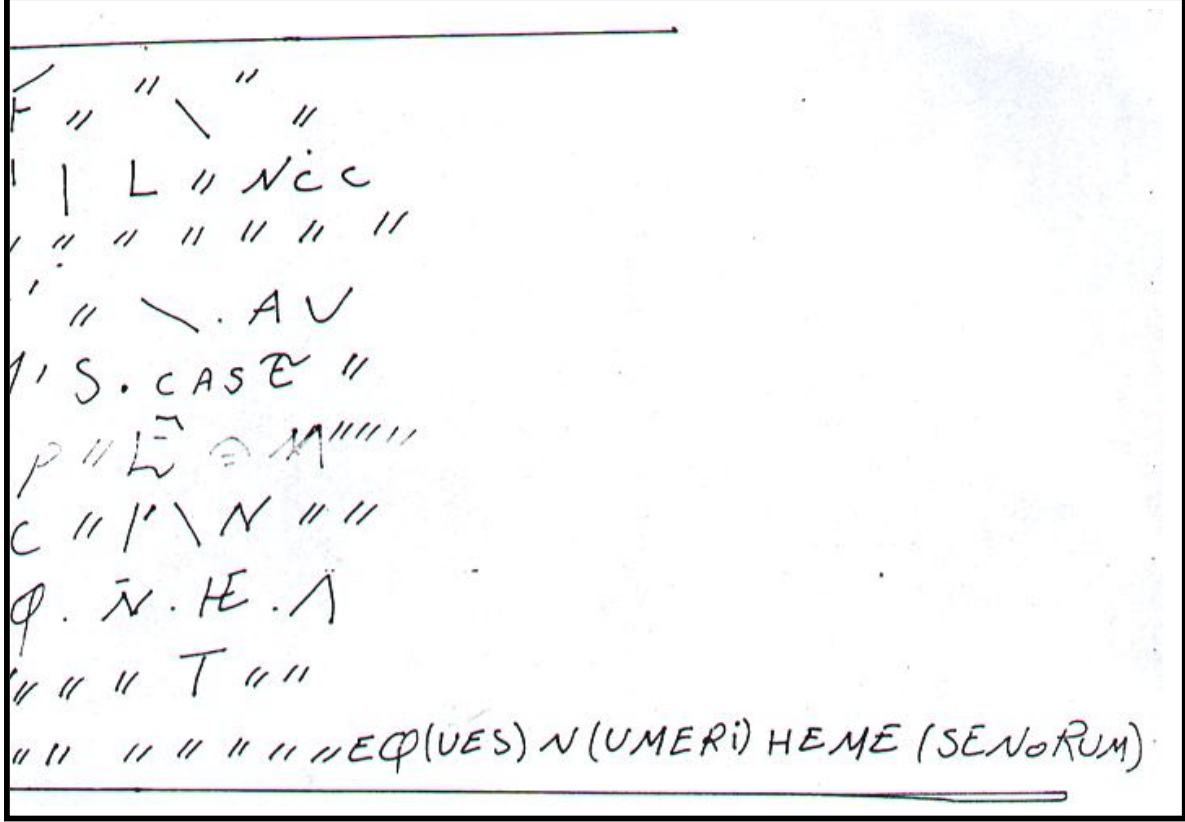 F " " \ " "
| | L " NĊC
" " " " " " "
' " \ . AV
' S. CASE "
P " E M " " "
C " | ' \ N " "
Q. N̄. HE. Λ
" " " T " "
" " " " " " " EQ(UES) N(UMERI) HEME(SENORUM)